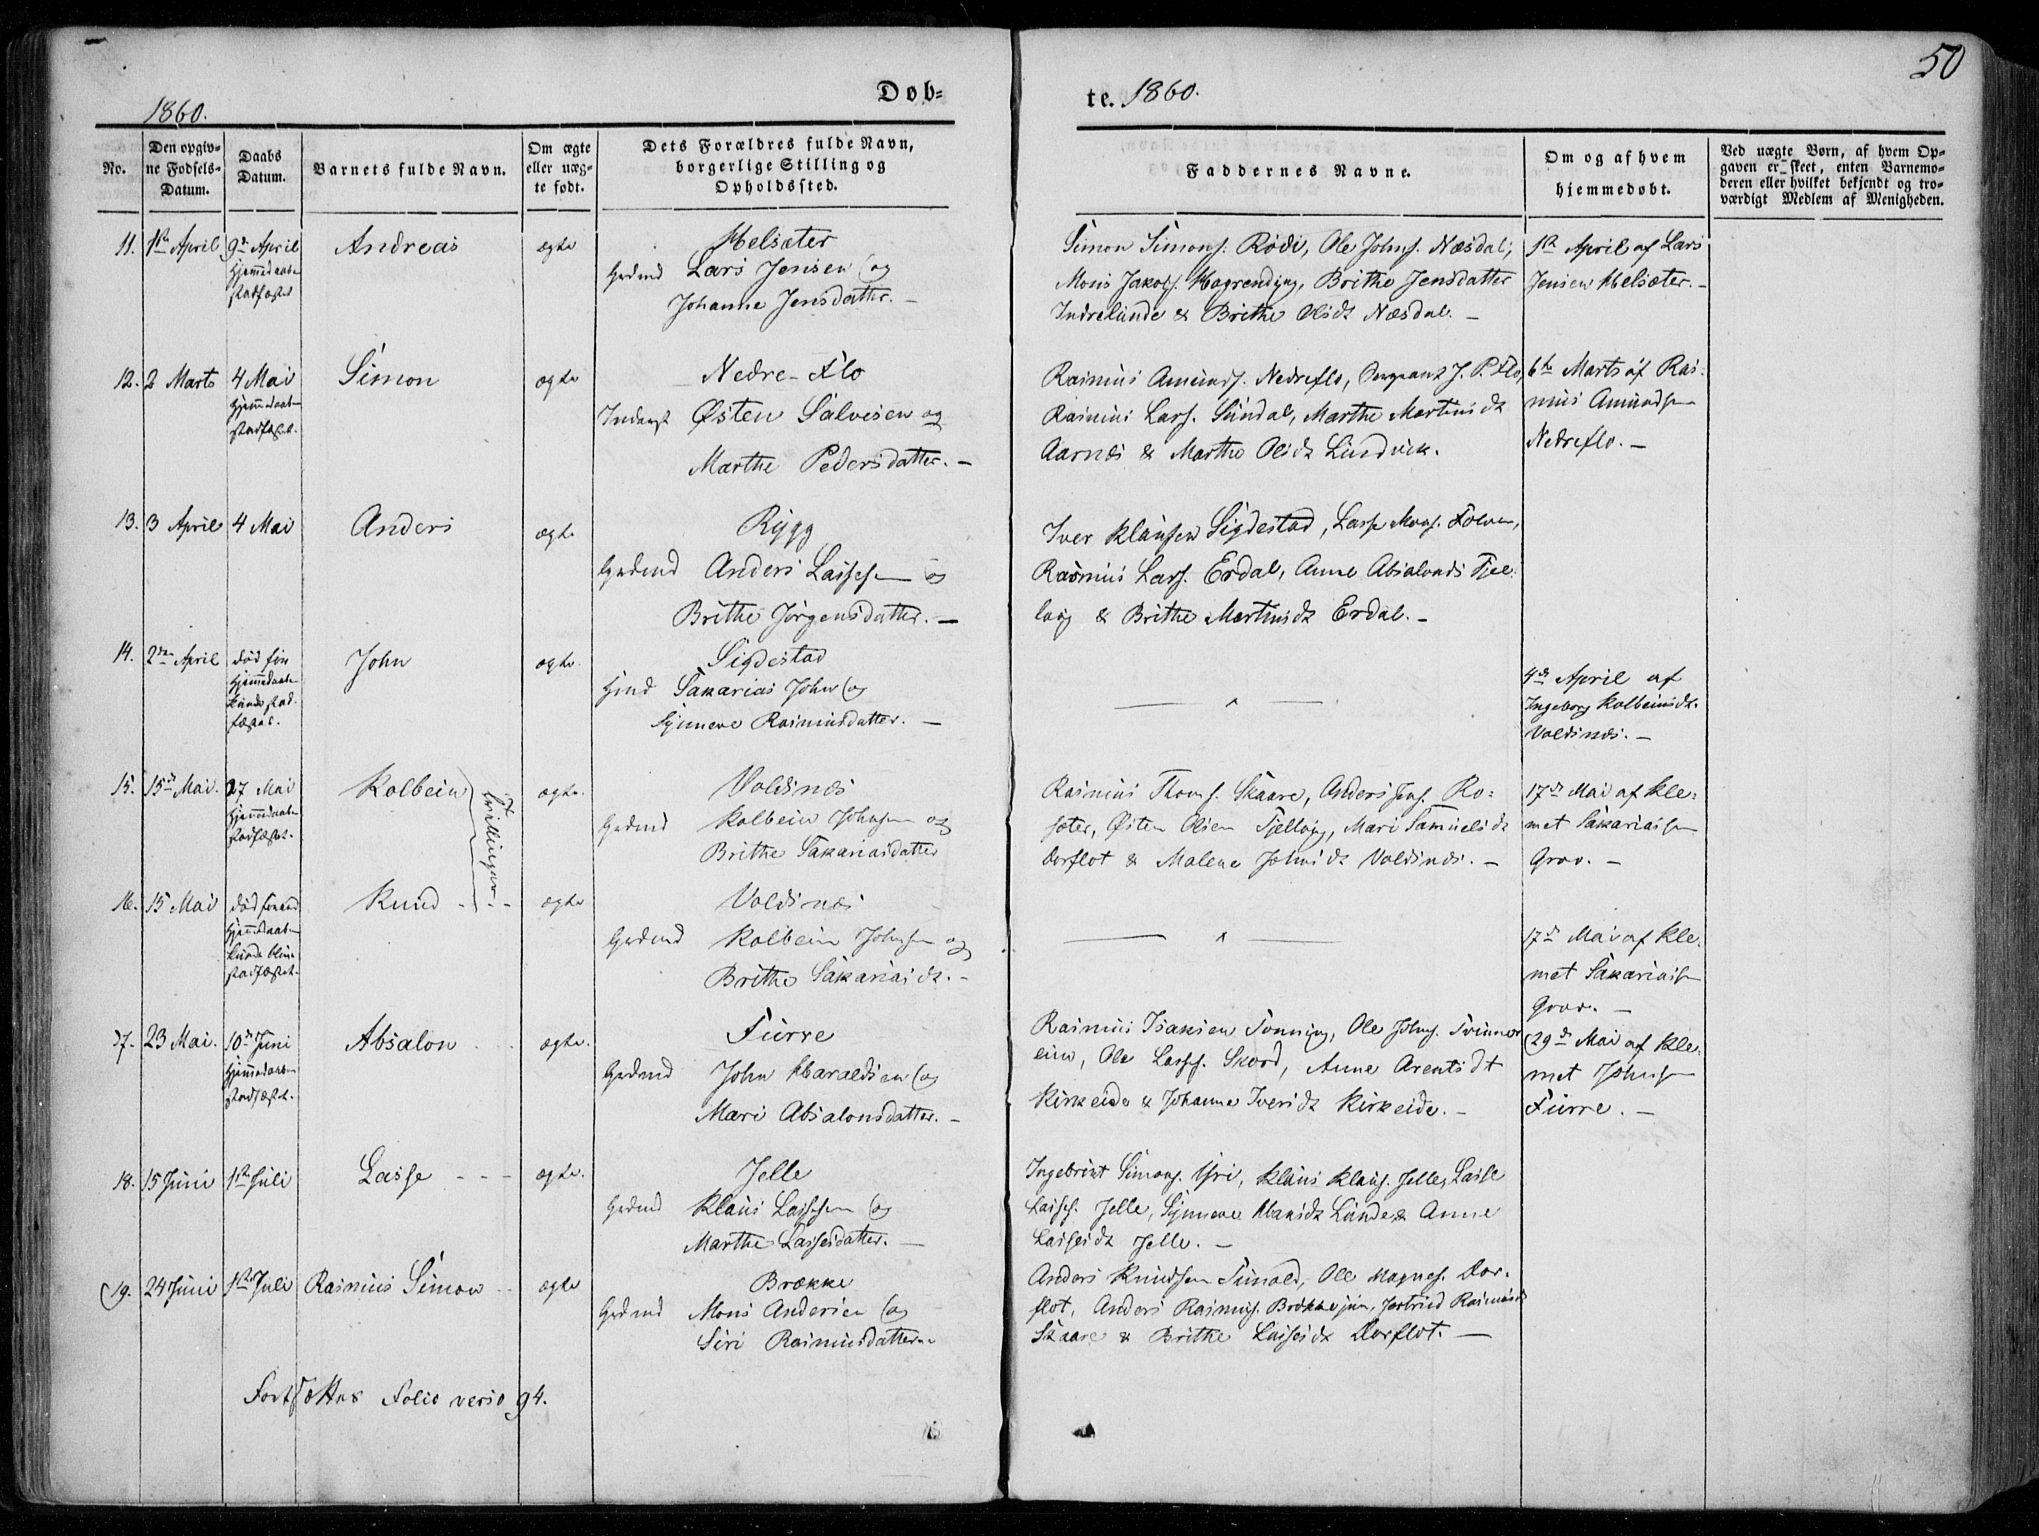 50
Døb=
te. 1860.
1860.
No.
Den opgiv=
ne Fødsels=
Datum.
Daabs
Datum.
Barnets fulde Navn.
Om ægte
eller uæg=
te født.
Dets Forældres fulde Navn,
borgerlige Stilling og
Opholdssted.
Faddernes Navne.
Om og af hvem
hjemmedøbt.
Ved uægte Børn, af hvem Op=
gaven er skeet, enten Barnemo=
deren eller hvilket bekjendt og tro=
værdigt Medlem af Menigheden.
11. 1ste April 9de April Andreas ægte Helsæter
Hjemmedaaben
stadfæstet
Grdmd Lars Jensen og
Johanne Jensdatter. -
Simon Simons. Rødi, Ole Johns. Næsdal,
Mons Jakobs. Hogrending, Brithe Jensdatter
Indrelunde & Brithe Olsdt Næsdal. -
1ste April af Lars
Jensen Helsæter. -
12. 2 Marts 4 Mai Simon ægte Nedre-Flo
Hjemmedaaben
stadfæstet.
Inderst Østen Salvesen og
Marthe Pedersdatter. -
Rasmus Amunds. Nedreflo, Sergeant J. P. Flo,
Rasmus Lars. Sundal, Marthe Martinsdt
Aarnes & Marthe Olsdt Lindvik.
6te Marts af Ras-
mus Amundsen
Nedreflo. -
13. 3 April 4 Mai Anders ægte Rygg
Grdmd Anders Lassesen og
Brithe Jørgensdatter. -
Iver Klausen Sigdestad, Lasse Mons. Folven,
Rasmus Lars. Erdal, Anne Absalonds Fjel-
laug & Brithe Martinsdt Erdal. -
14. 2den April død før John ægte. Sigdestad
Hjemmedaaben
kunde stad-
fæstes.
Hmd Sakarias Johns og
Synneve Rasmusdatter. -
4de April af
Ingeborg Kolbeinsdt.
Voldsnes. -
15. 15de Mai. 27 Mai Kolbein Tvillinger ægte. Voldsnes
Hjemmedaaben
stadfæstet.
Grdmd Kolbein Johnsen og
Brithe Sakariasdatter
Rasmus Thoms. Skaare, Anders Jens. Ro-
sæter, Østen Olsen Fjellaug, Mari Samuelsdt
Dorflot & Malene Johnsdt Voldsnes. -
17de Mai af Kle-
met Sakariassen
Grov. -
16. 15 Mai død førend Knud ægte Voldsnes
Hjemmedaaben
kunde blive
stadfæstet.
Grdmd Kolbein Johnsen og
Brithe Sakariasdt. -
17de Mai af Kle-
met Sakariassen
Grov. -
17. 23 Mai. 10de Juni Absalon ægte. Furre
Hjemmedaaben
stadfæstet.
Grdmd John Haraldsen og
Mari Absalonsdatter. -
Rasmus Isaksen Tonning, Ole Johns. Tvinner
eim, Ole Lasses. Skord, Anne Arentsdt
Kirkeide & Johanne Iversdt Kirkeide. -
29de Mai af Kle-
met Johnsen
Furre. -
18. 15 Juni 1ste Juli Lasse ægte. Jelle
Grdmd Klaus Lassesen og
Marthe Lassesdatter. -
Ingebrigt Simons. Yri, Klaus Klaus. Jelle, Lasse
Lasses. Jelle, Synneve Hansdt Lunde & Anne
Lassesdt Jelle. -
19. 24 Juni 1ste Juli Rasmus Simon ægte Brække
Grdmd Mons Andersen og
Siri Rasmusdatter -
Anders Knudsen Sunold, Ole Magnes. Dor-
flot, Anders Rasmus. Brække jun, Jertrud Rasmusdt
Skaare & Brithe Lassesdt Dorflot. -
Fortsættes Folio verso 94.